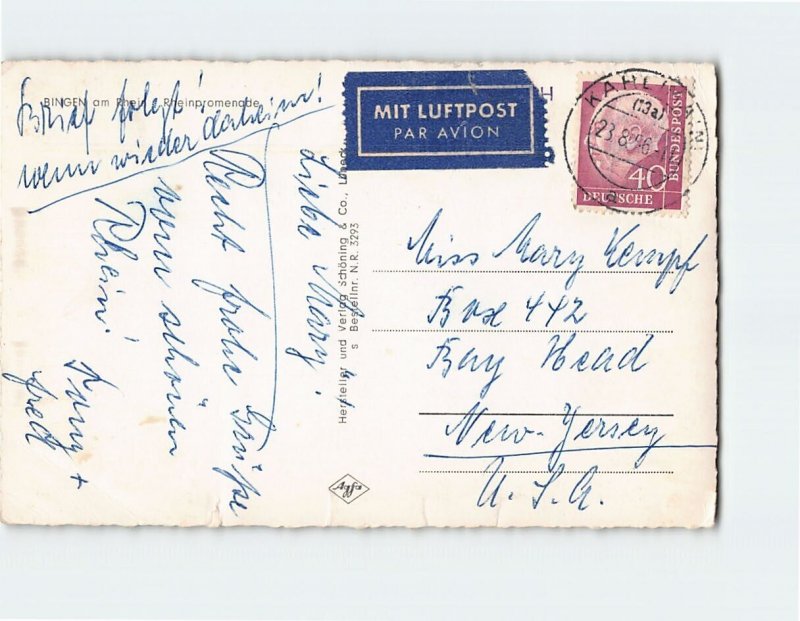 BINGEN am Rhein, Rheinpromenade
Brief folgt!
wenn wieder daheim!
Liebe Mary!
Recht frohe Grüße
vom schönen
Rhein!
Fany +
Fred
Hersteller und Verlag Schöning & Co., Lübeck
s Bestellnr. N.R. 3293
Agfa
MIT LUFTPOST
PAR AVION
(13a)
23.8.
40
DEUTSCHE
BUNDESPOST
Miss Mary Kempf
Box 442
Bay Head
New-Jersey
U.S.A.